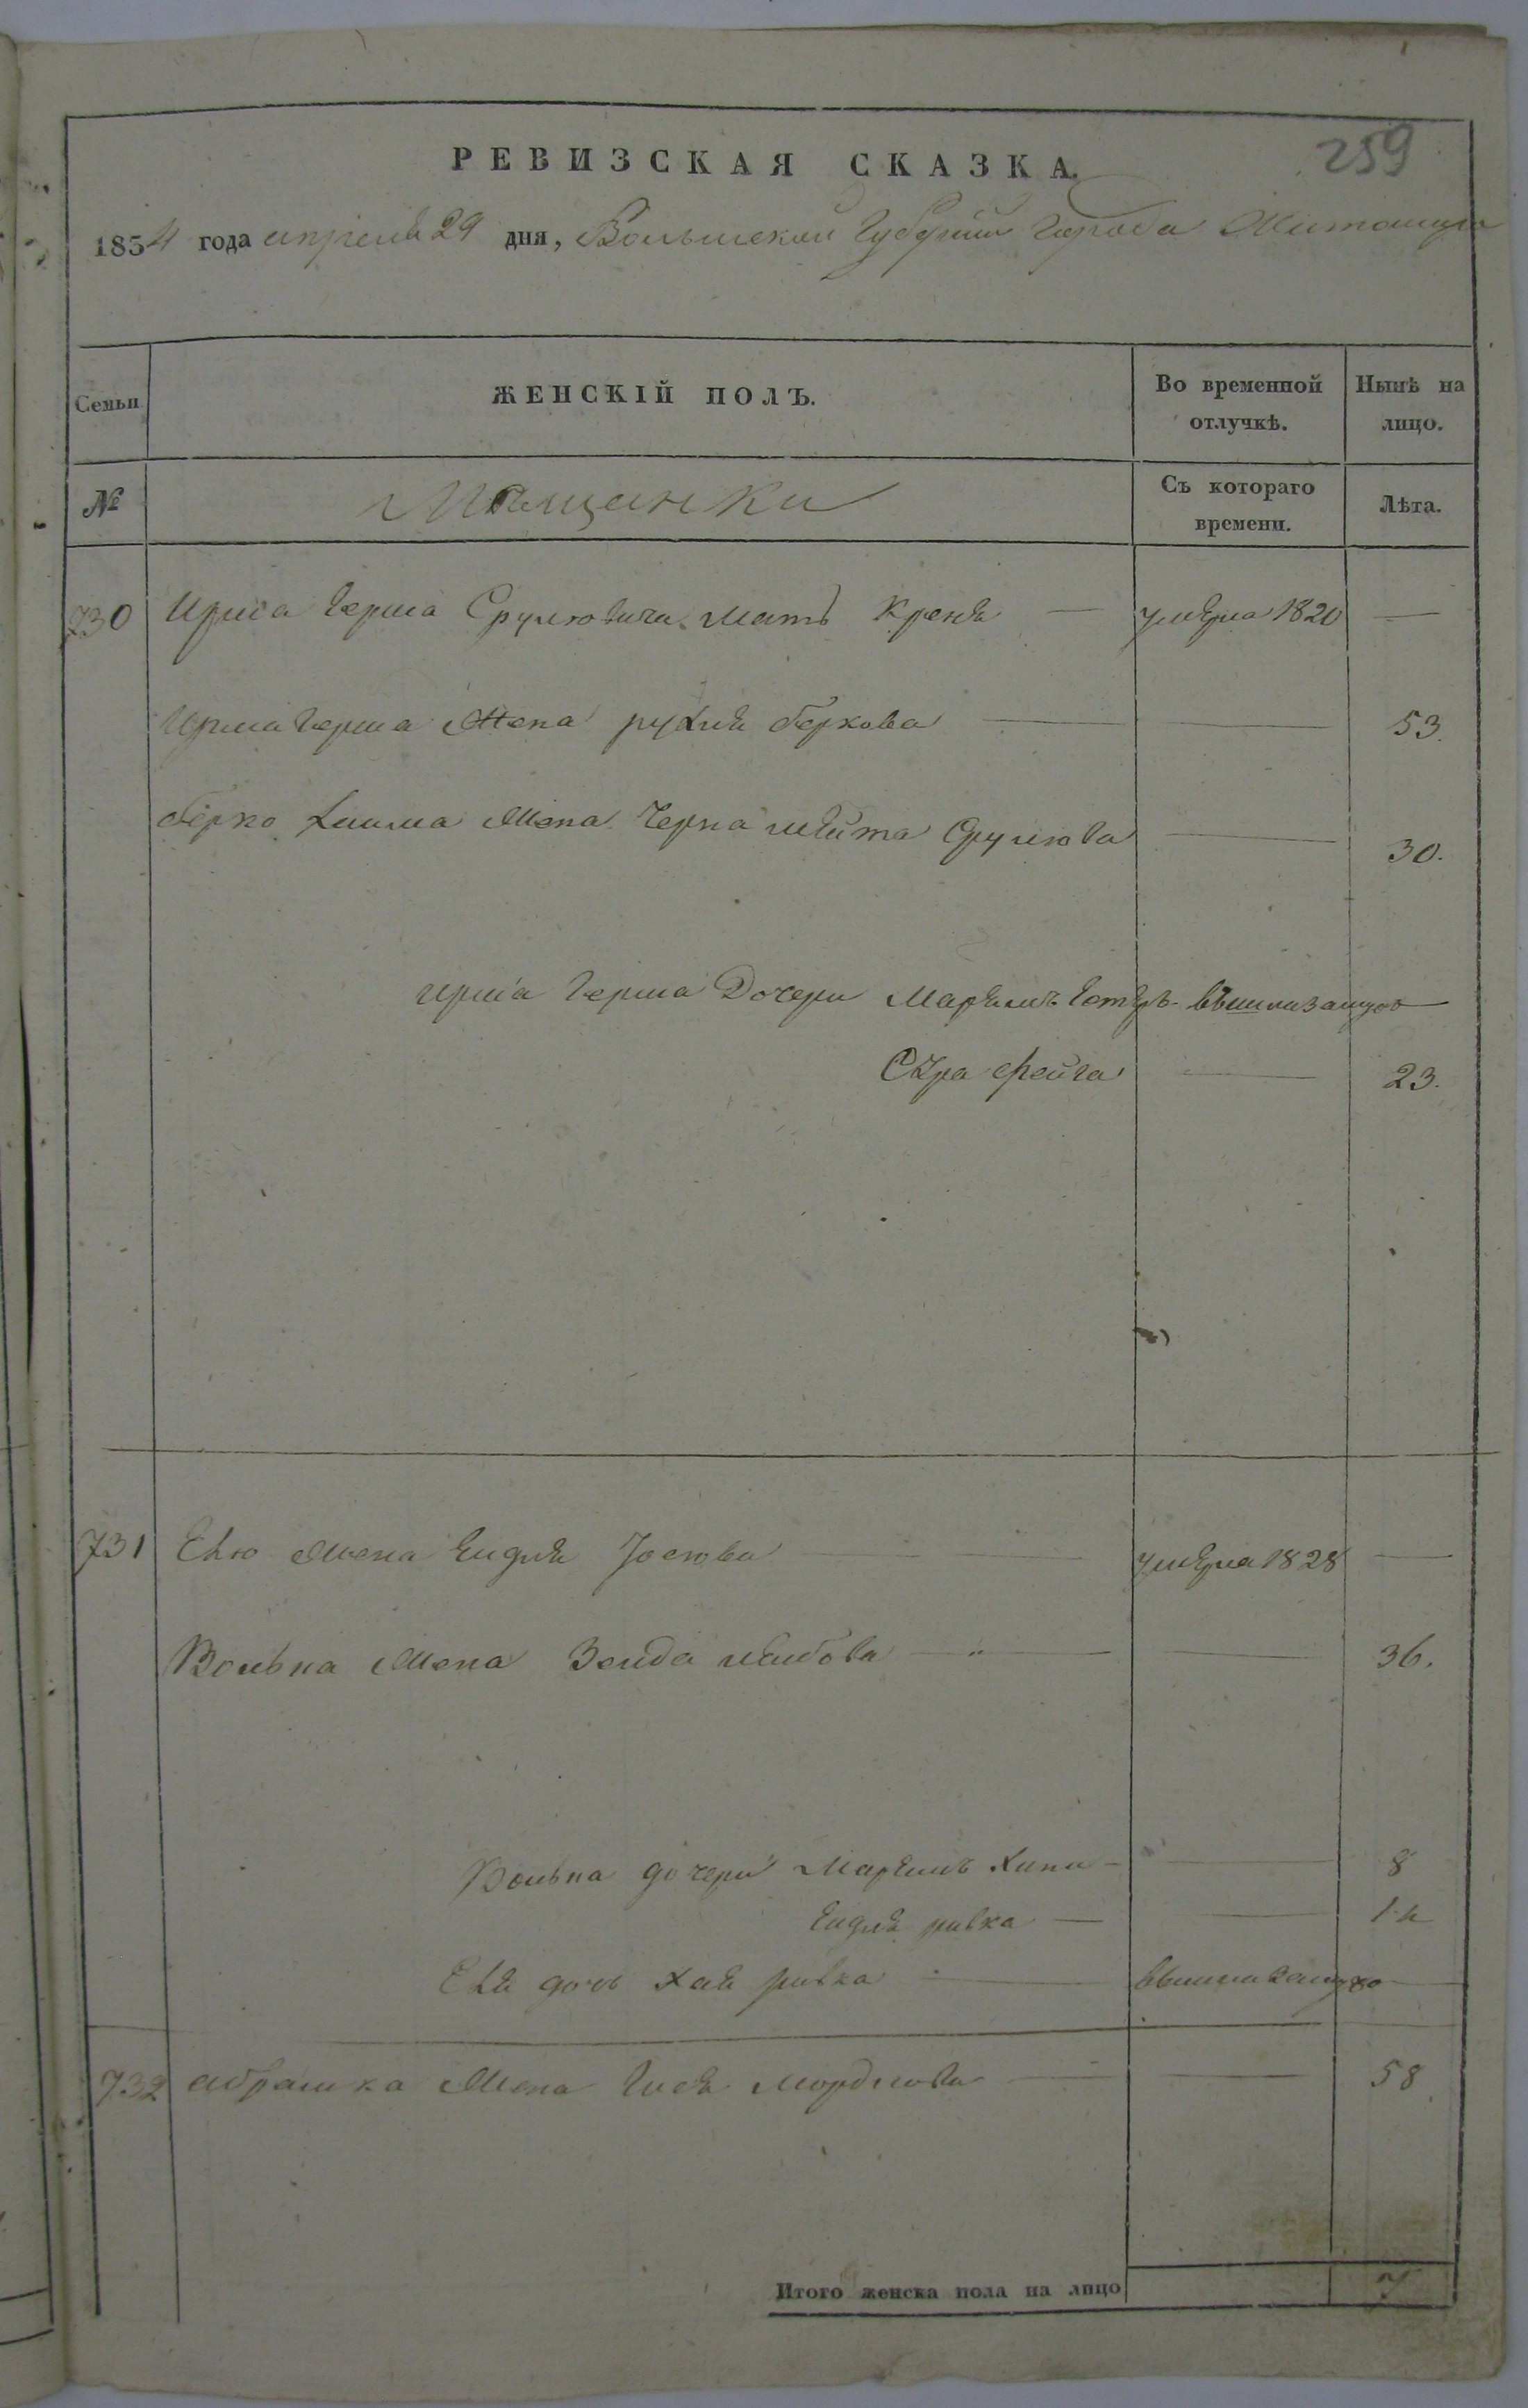 259
РЕВИЗСКАЯ СКАЗКА.
1834 года апреля 29 дня, Волынской Губернии Города Житомира
Семьи ЖЕНСКІЙ ПОЛЪ. Во временной отлучкѣ. Нынѣ на лицо.
№ Мѣщанки Съ котораго времени. Лѣта.
730 Ирша Герша Срулювича Мать Креня — умерла 1820 —
Ирша Герша Жена рухля беркова — — 53.
берко Хаима Жена Черна Срулюва — 30.
Ирша Герша Дочери Марямъ Естеръ вышли замужъ —
Сура Фейга — 23.
731 Жена Ендля Іосіова — умерла 1828 —
Вольпа Жена Зелда — — 36.
Вольпа дочери Марямъ Хипи — — 8
Ендля ривка — —
дочь Хая ривка — вышла замужъ —
732 Абрамка Жена Гися Мордкова — — 58
Итого женска пола на лицо 7